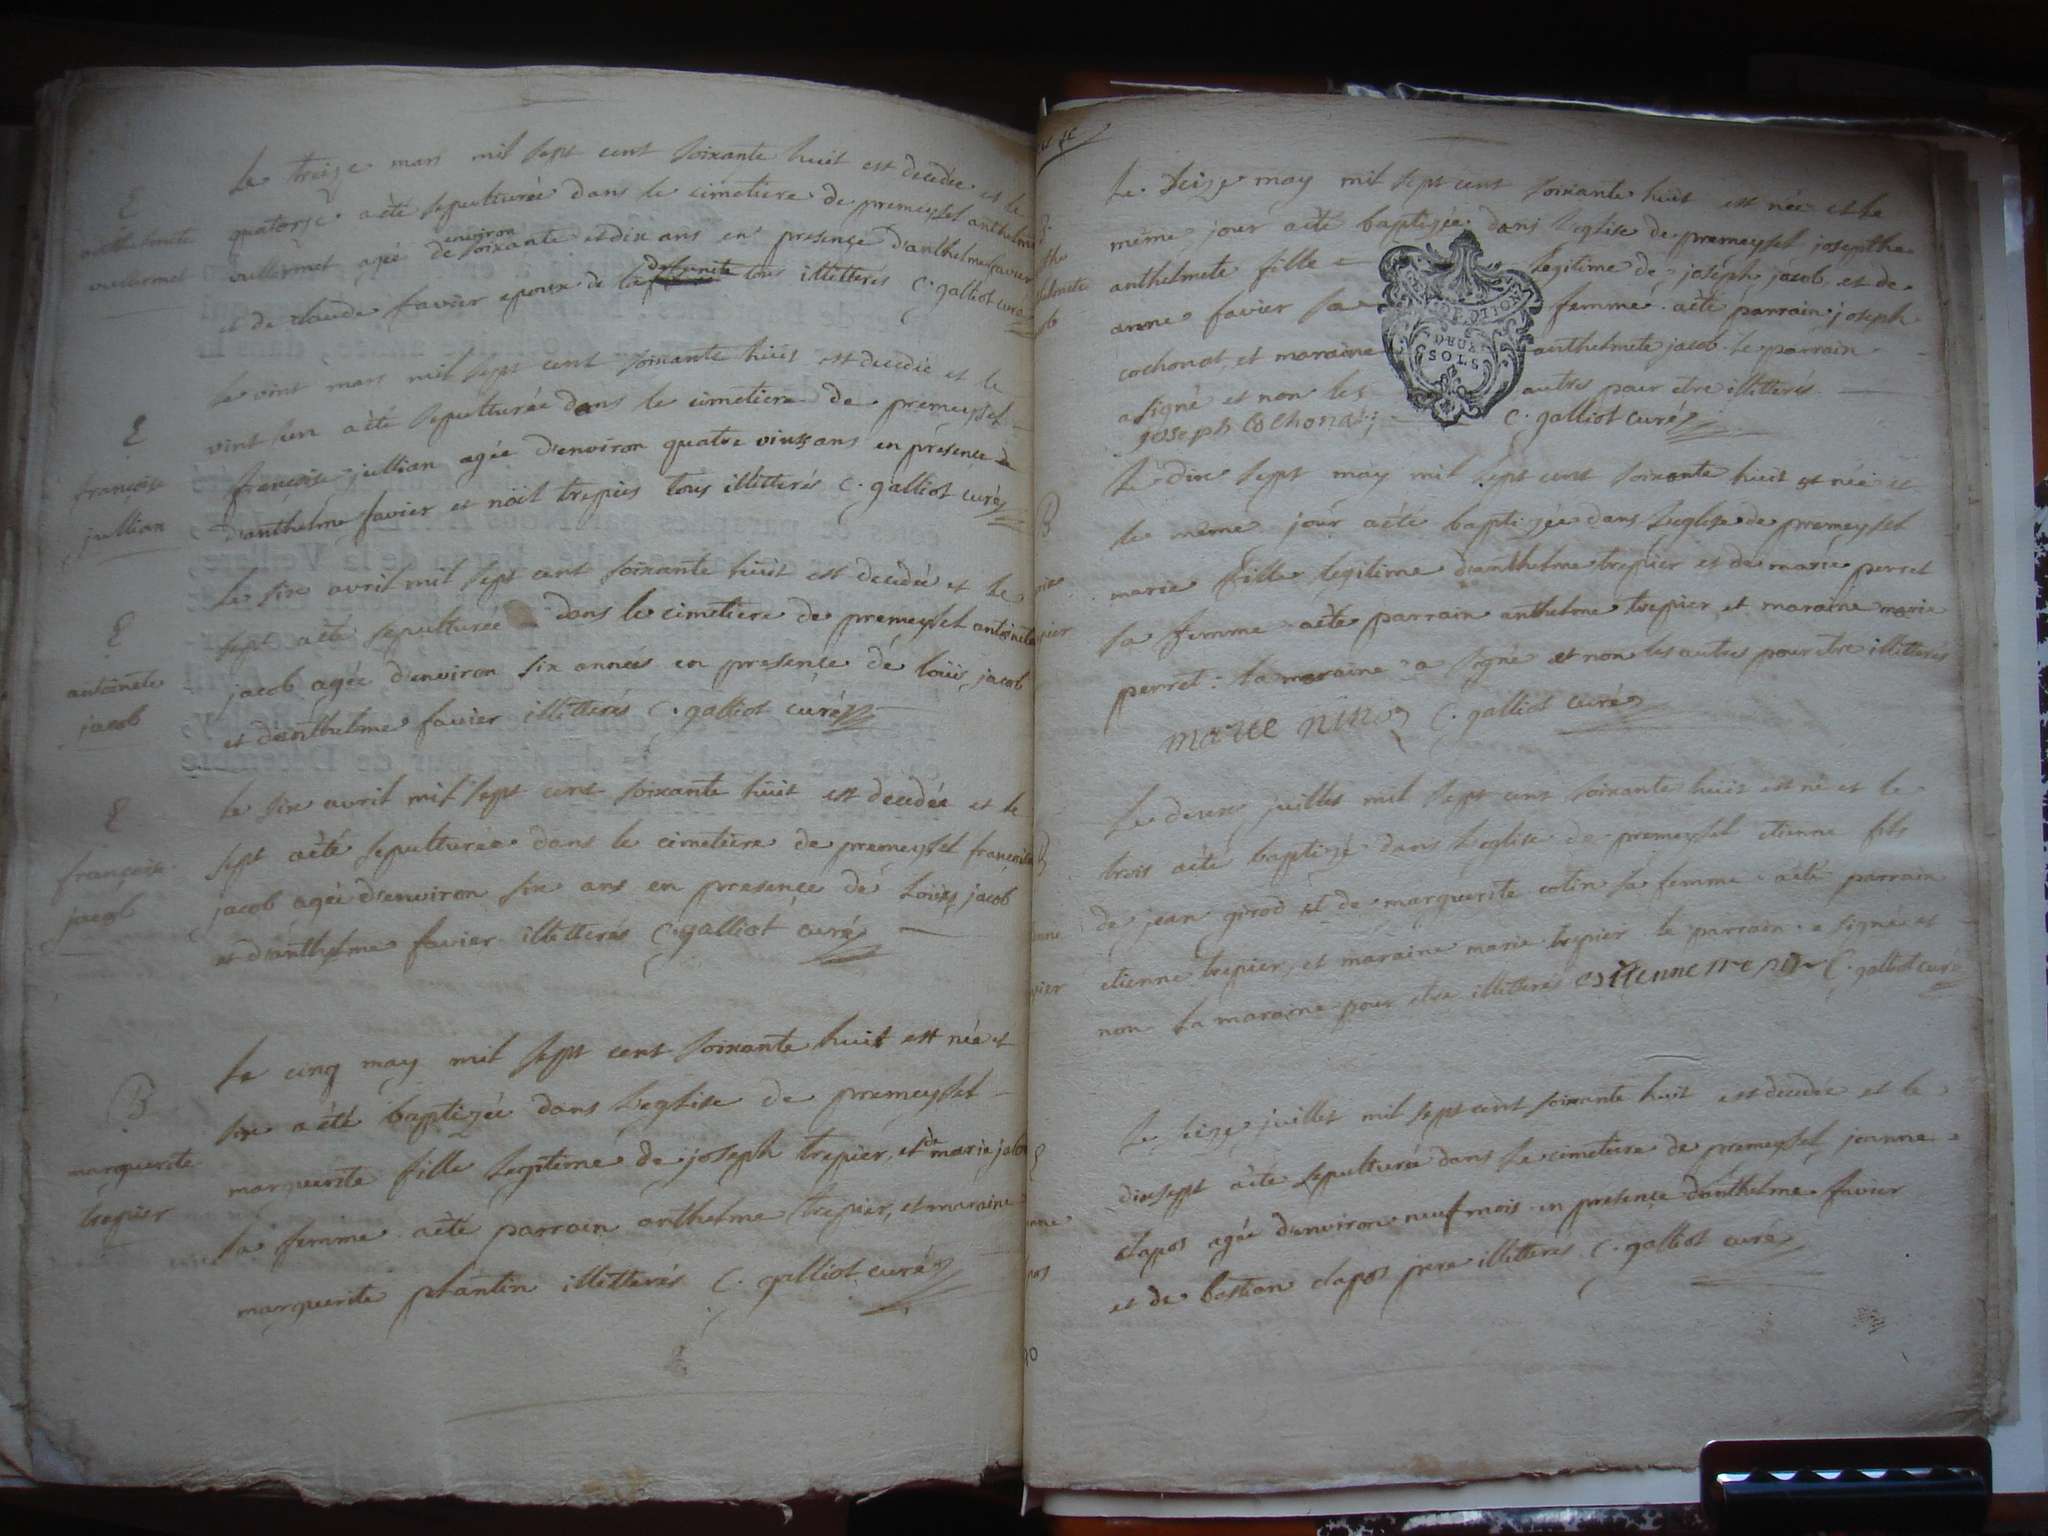 Le treize mars mil sept cent soixante huit est decedée et le
quatorze aété sepulturée dans le cimetiere de premeysel anthelmete
vuillermet agée de environ soixante et dix ans en presence d'anthelme favier
et de claude favier epoux de la defunte tous illitterés C. galliot curé
E
anthelmete
vuillermet
Le vint mars mil sept cent soixante huit est decedée et le
vint un aété sepulturée dans le cimetiere de premeysel
françoise jullian agée d'environ quatre vints ans en présence de
d'anthelme favier et noël trepier tous illitterés C. galliot curé
E
françoise
jullian
Le six avril mil sept cent soixante huit est decedée et le
sept aété sepulturée dans le cimetiere de premeysel antoinete
jacob agée d'environ six années en presence de loüis jacob
et d'anthelme favier illitterés C. galliot curé
E
antoinete
jacob
Le six avril mil sept cent soixante huit est decedée et le
sept aété sepulturée dans le cimetiere de premeysel françoise
jacob agée d'environ six ans en presence de Loüis jacob
et d'anthelme favier illitterés C. galliot curé
E
françoise
jacob
Le cinq may mil sept cent soixante huit est née et
six a été baptizée dans l'eglise de premeysel
marguerite fille legitime de joseph trepier, et de marie jacob
sa femme aété parrain anthelme trepier, et maraine
marguerite plantin illitterés C. galliot curé
B
marguerite
trepier
Le seize may mil sept cent soixante huit est née et le
même jour aété baptizée dans l'eglise de premeysel josepthe
anthelmete fille legitime de joseph jacob et de
anne favier sa femme aété parrain joseph
cochonat, et maraine anthelmete jacob le parrain
a signé et non les autres pour etre illitterés
joseph cochonat C. galliot curé
DEUX
SOLS
Le dix sept may mil sept cent soixante huit est née et
le même jour aété baptizée dans l'eglise de premeysel
marie fille legitime d'anthelme trepier et de marie perret
sa femme aété parrain anthelme trepier, et maraine marie
perret: la maraine a signé et non les autres pour etre illitterés
marie C. galliot curé
B
Le deux juillet mil sept cent soixante huit est né et le
trois aété baptizé dans l'eglise de premeysel etienne fils
de jean girod et de marguerite cotin sa femme aété parrain
etienne trepier, et maraine marie trepier le parrain a signé et
non la maraine pour etre illitterés C. galliot curé
B
Le seize juillet mil sept cent soixante huit est decedée et le
dixsept aété sepulturée dans le cimetiere de premeysel jeanne
clapos agée d'environ neuf mois en presence d'anthelme favier
et de bastian clapos pere illitterés C. galliot curé
E